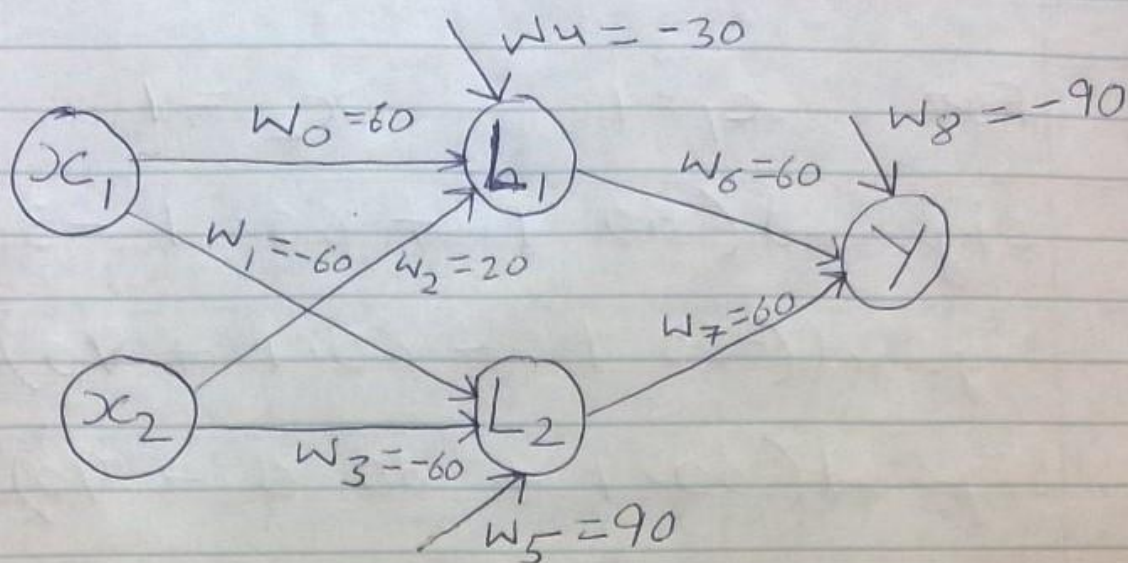 W4 = -30
W8 = -90
W0 = 60
x1
L1
W6 = 60
Y
W1 = -60
W2 = 20
W7 = 60
x2
L2
W3 = -60
W5 = 90